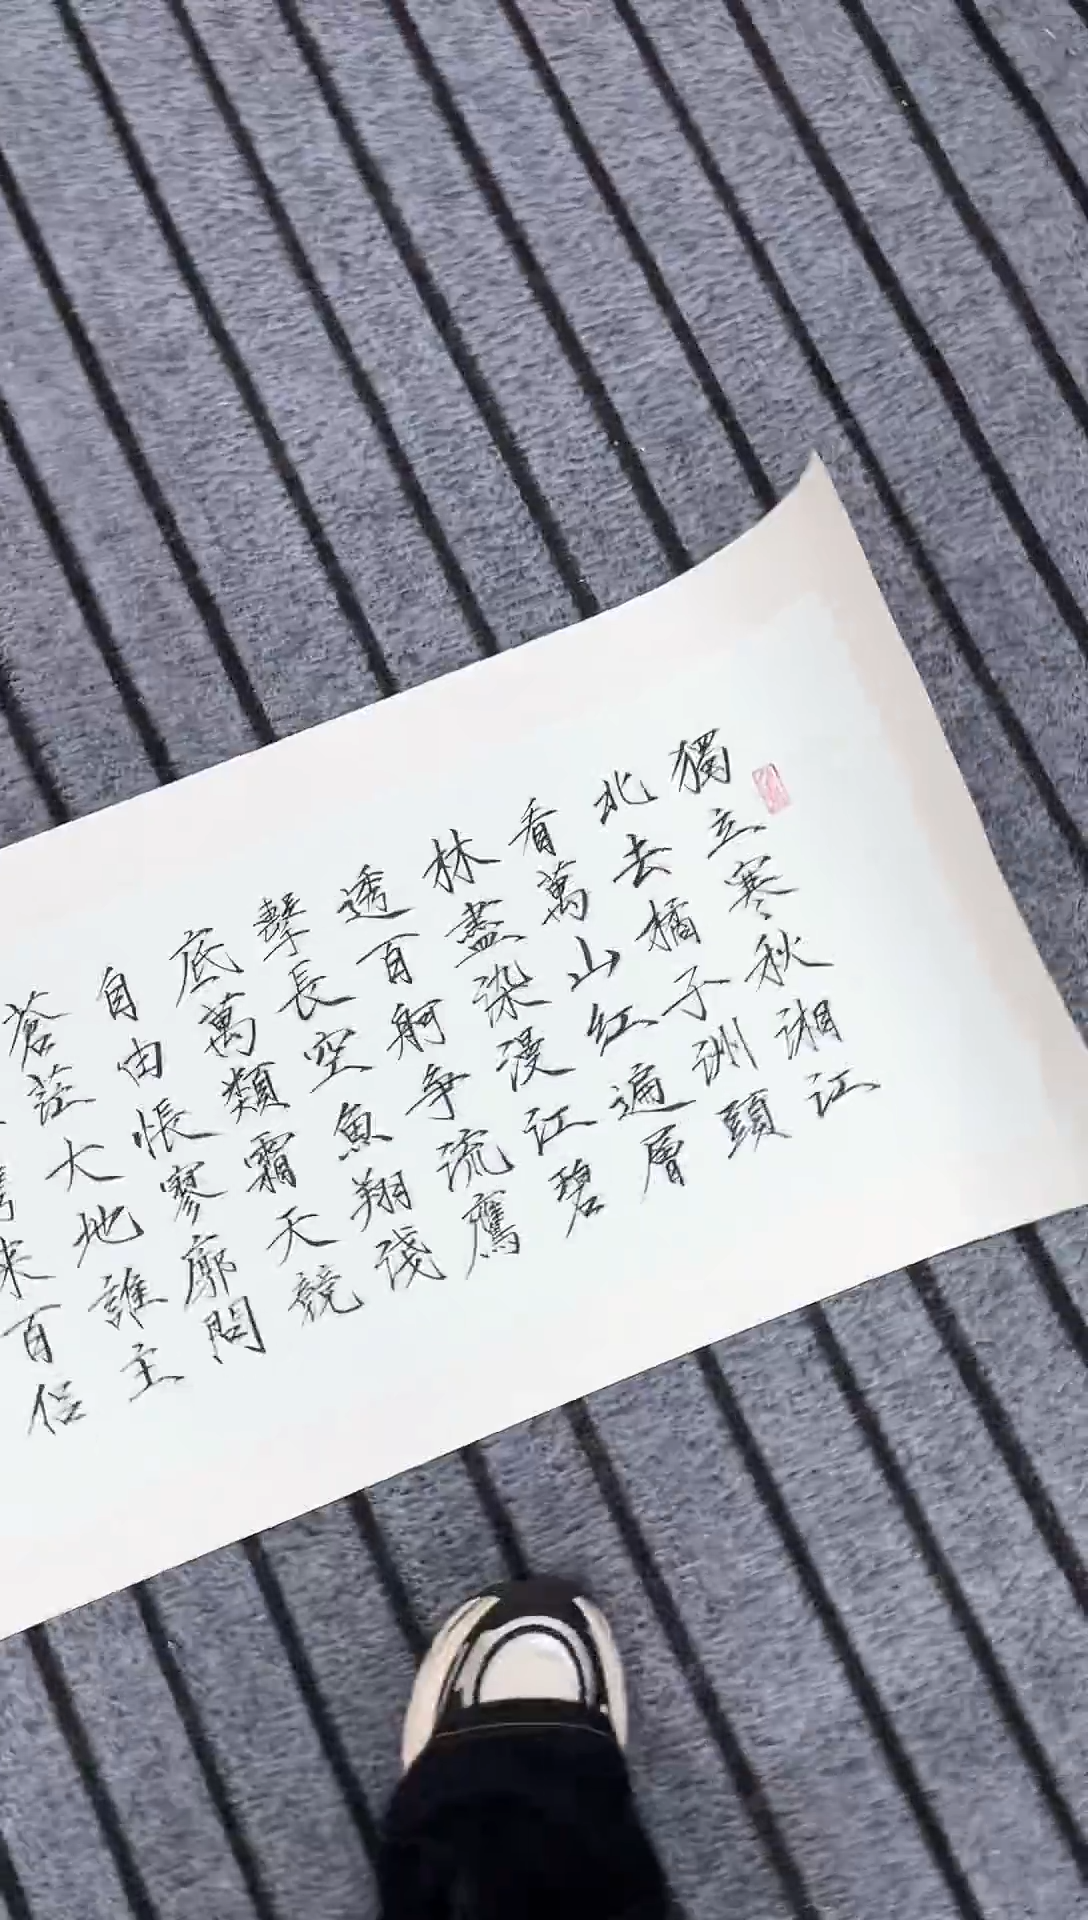 獨立寒秋湘江
北去橘子洲頭
看萬山紅遍層
林盡染漫江碧
透百舸争流鷹
擊長空魚翔淺
底萬類霜天競
自由悵寥廓問
蒼茫大地誰主
來百侣